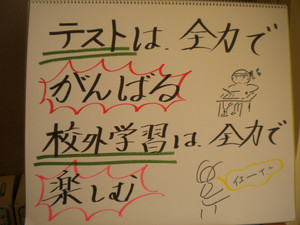 テストは、全力で
がんばる
校外学習は、全力で
楽しむ
イェーイ